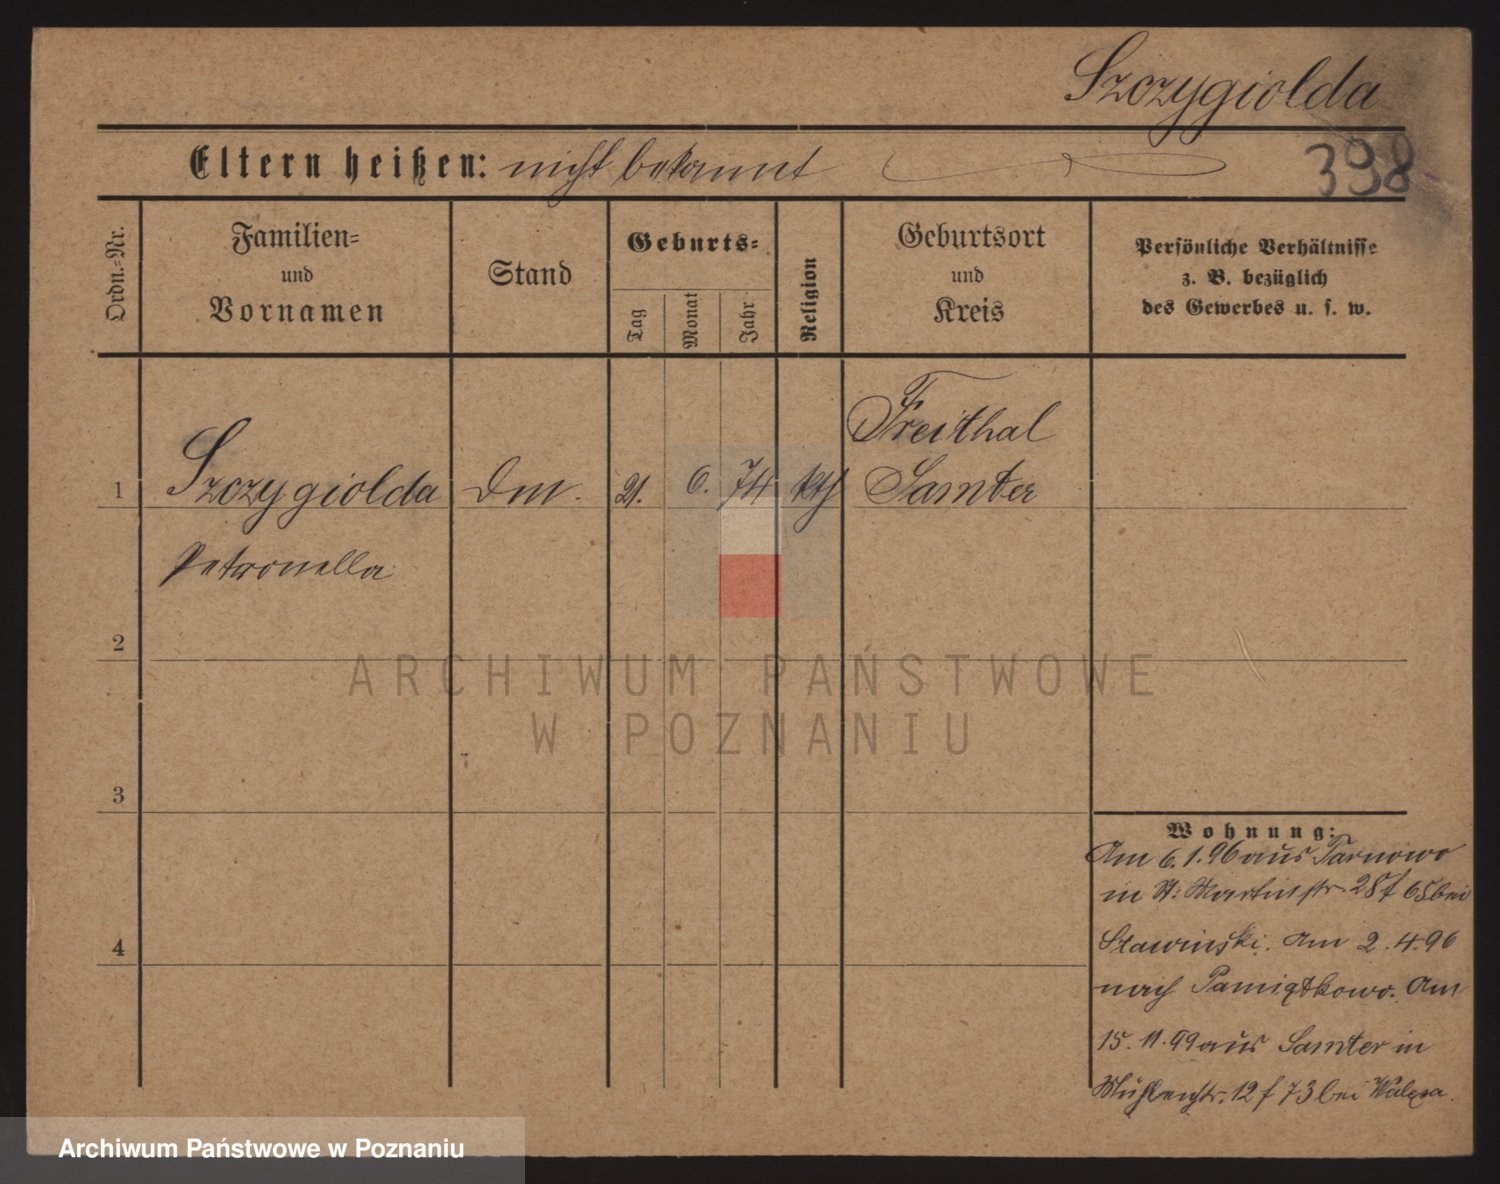 Szczygiolda
Eltern heißen: nicht bekannt
398
Ordn.-Nr.
Familien-
und
Vornamen
Stand
Geburts-
Tag
Monat
Jahr
Religion
Geburtsort
und
Kreis
Persönliche Verhältnisse
z. B. bezüglich
des Gewerbes u. s. w.
Freithal
1 Szczygiolda Dm. 21. 6. 74 kth Samter
Petronella
2
3
4
Wohnung:
Am 6.1.96 aus Tarnowo
in St. Martinstr. 28 f 65 bei
Stawinski. Am 2.4.96
nach Pamiątkowo. Am
15.11.99 aus Samter in
Mühlenstr. 12 f 73 bei
ARCHIWUM PAŃSTWOWE
W POZNANIU
Archiwum Państwowe w Poznaniu